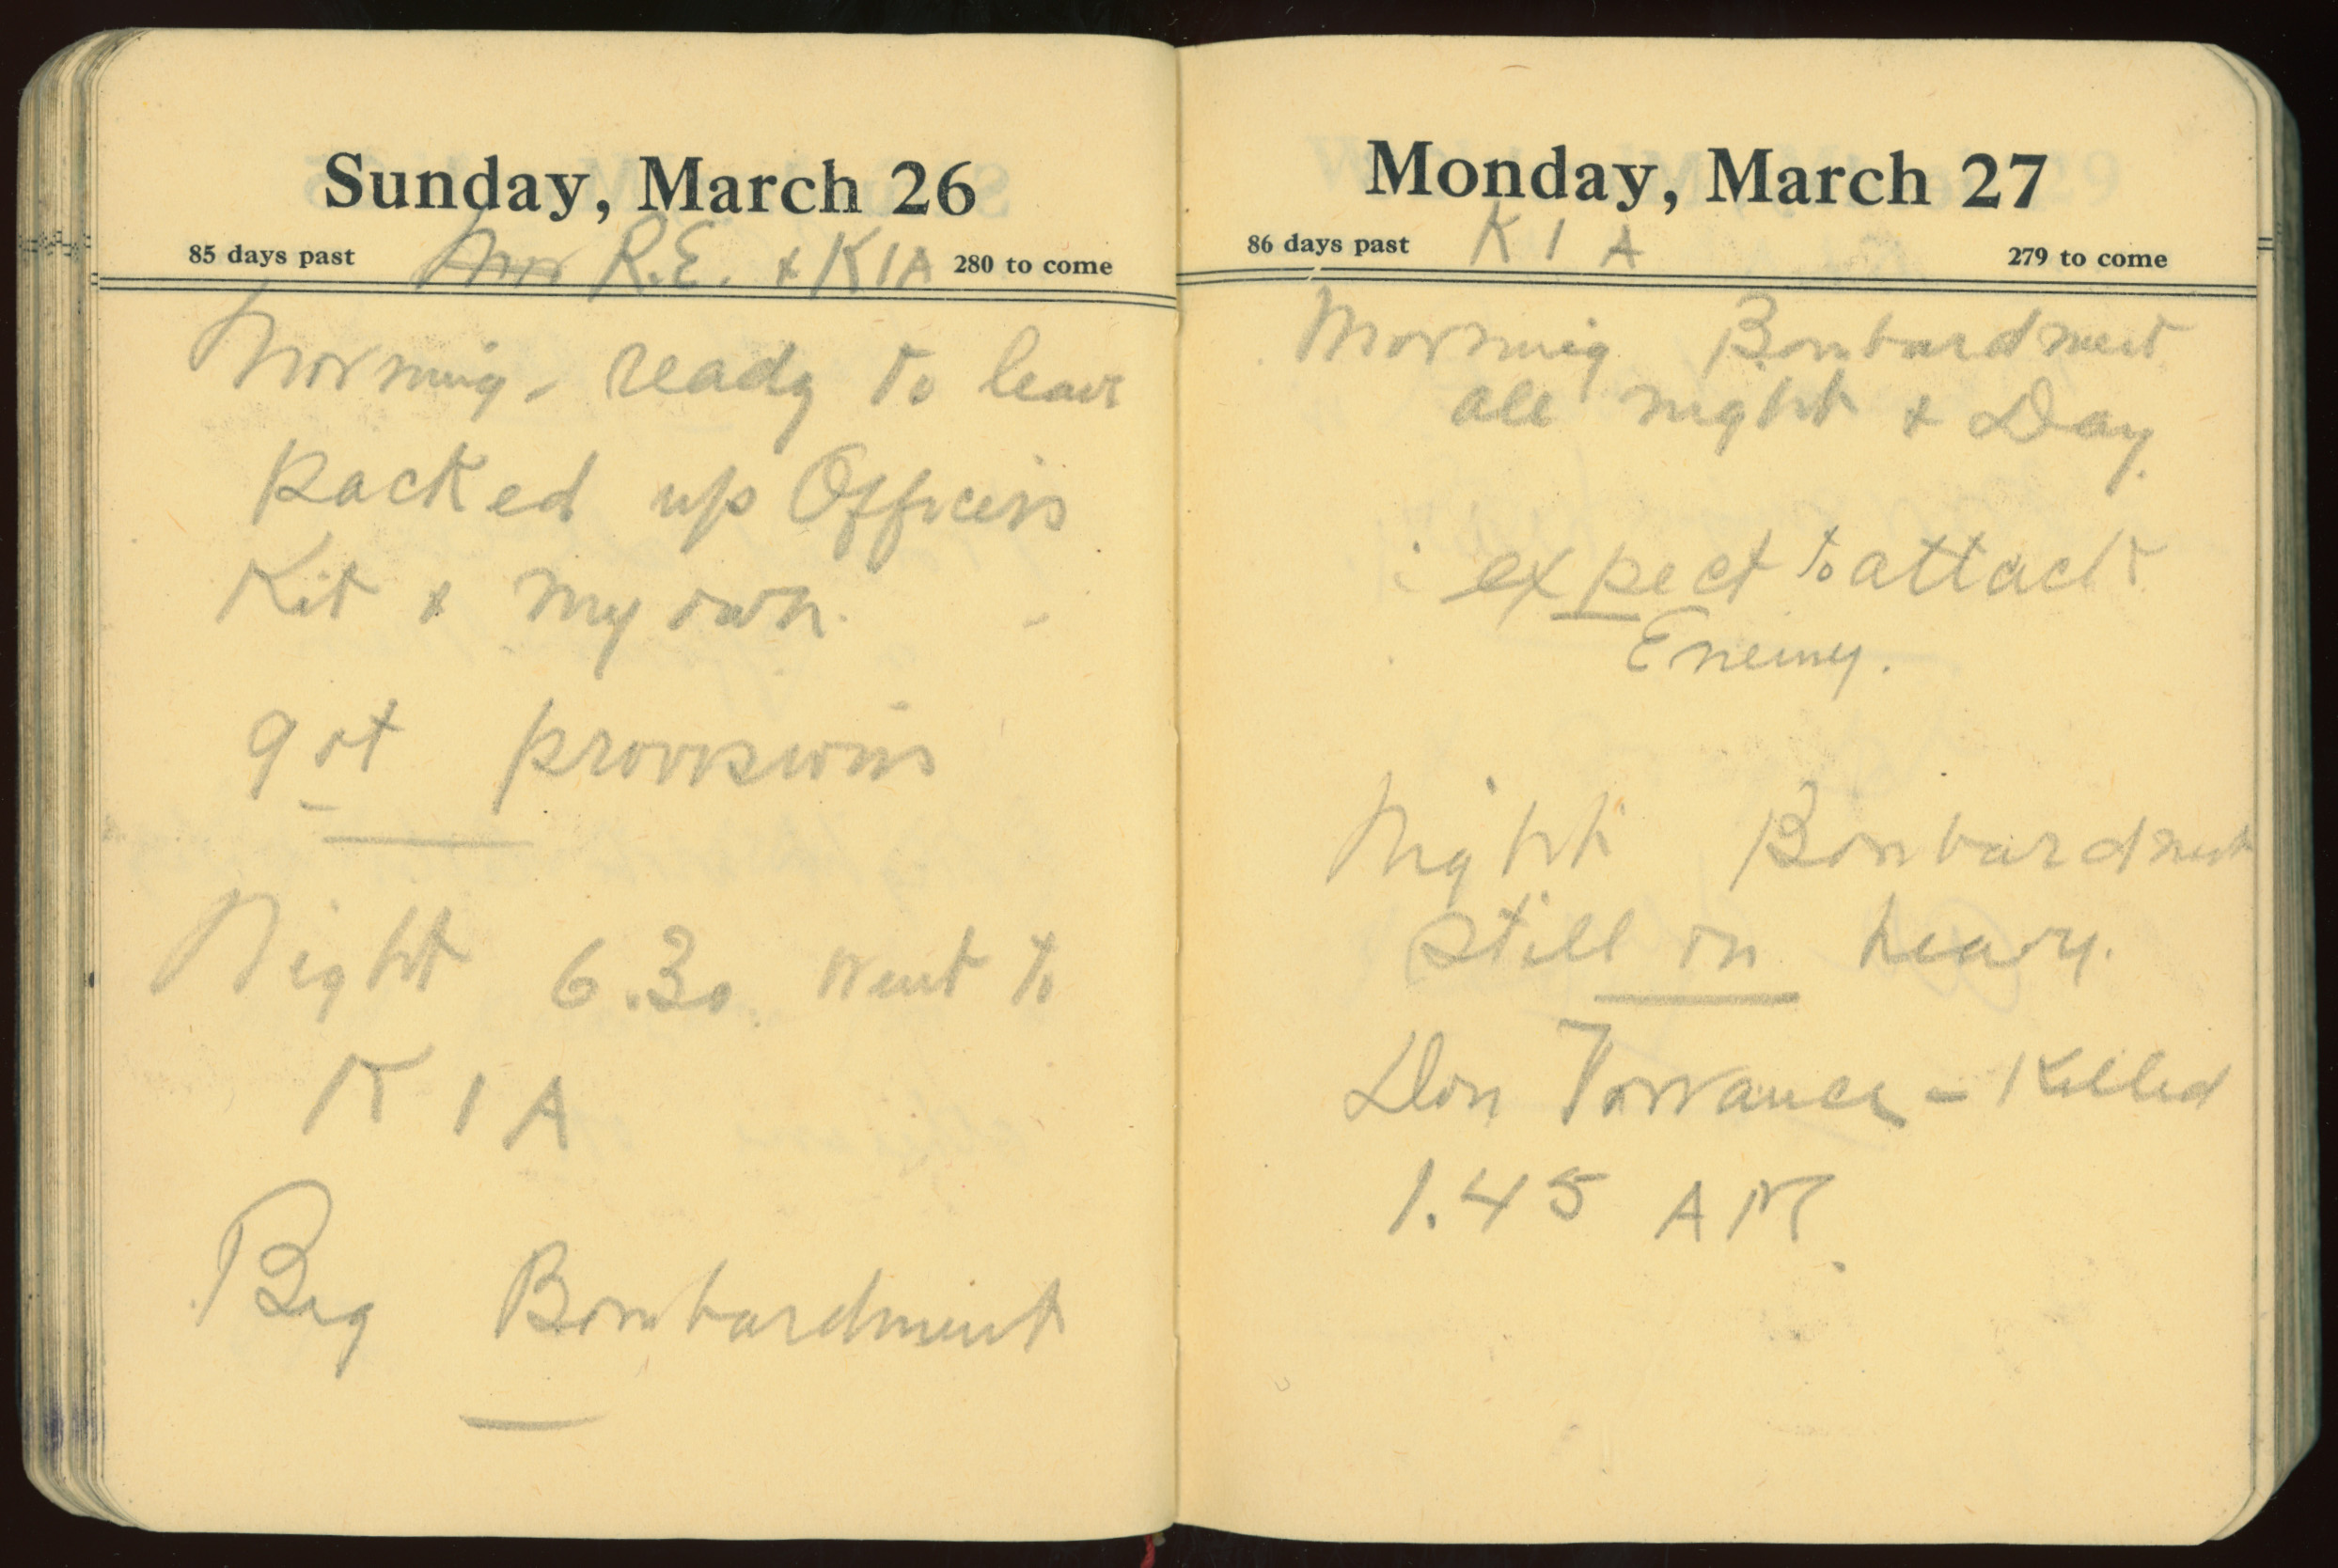 Sunday, March 26
85 days past R.E. + K1A 280 to come
Morning - ready to leave
packed up Officers
Kit + my own.
got provisions
Night 6.30. went to
K 1 A
Big Bombardment
Monday, March 27
86 days past K 1 A 279 to come
Morning Bombardment
all night + Day.
expect to attack
Enemy.
Night Bombardment
still on heavy.
Don Torrance - Killed
1.45 AM.